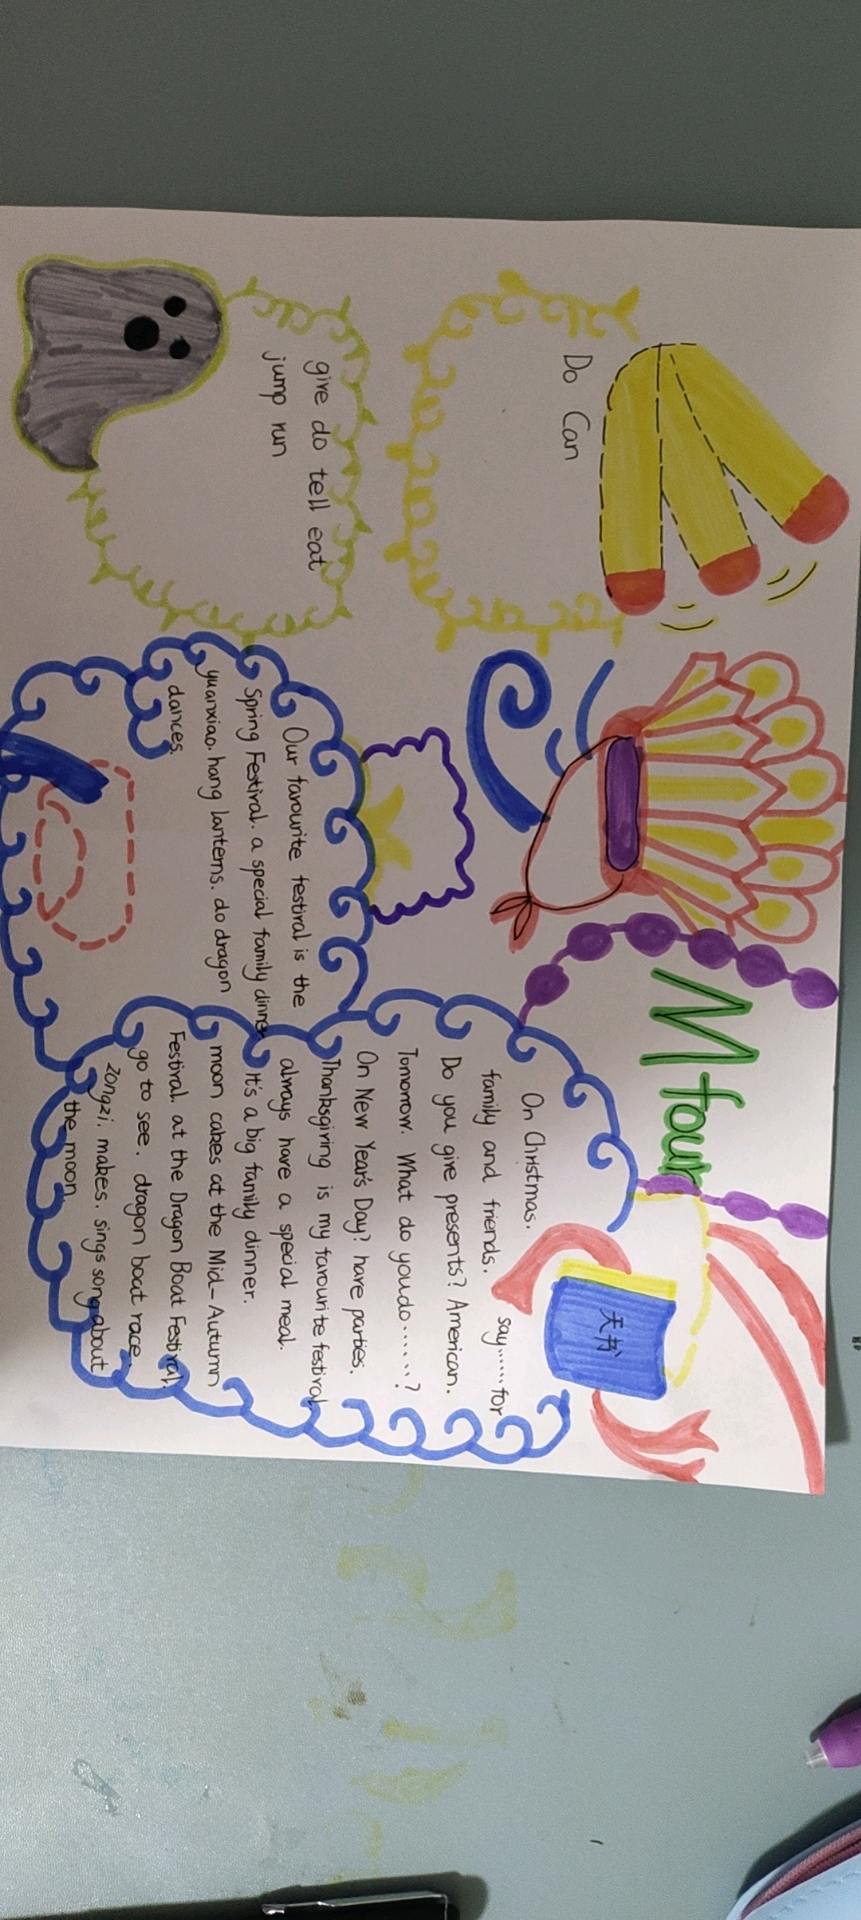 M four
天书
Do Can
give do tell eat
jump run
Our favourite festival is the
Spring Festival. a special family dinner
yuanxiao. hang lanterns. do dragon
dances.
On Christmas.
family and friends. say......for
Do you give presents? American.
Tomorrow. What do youdo......?
On New Year's Day? have parties.
Thanksgiving is my favourite festival
always have a special meal.
It's a big family dinner.
moon cakes at the Mid-Autumn
Festival. at the Dragon Boat Festival.
go to see. dragon boat race.
zongzi. makes. sings song about
the moon